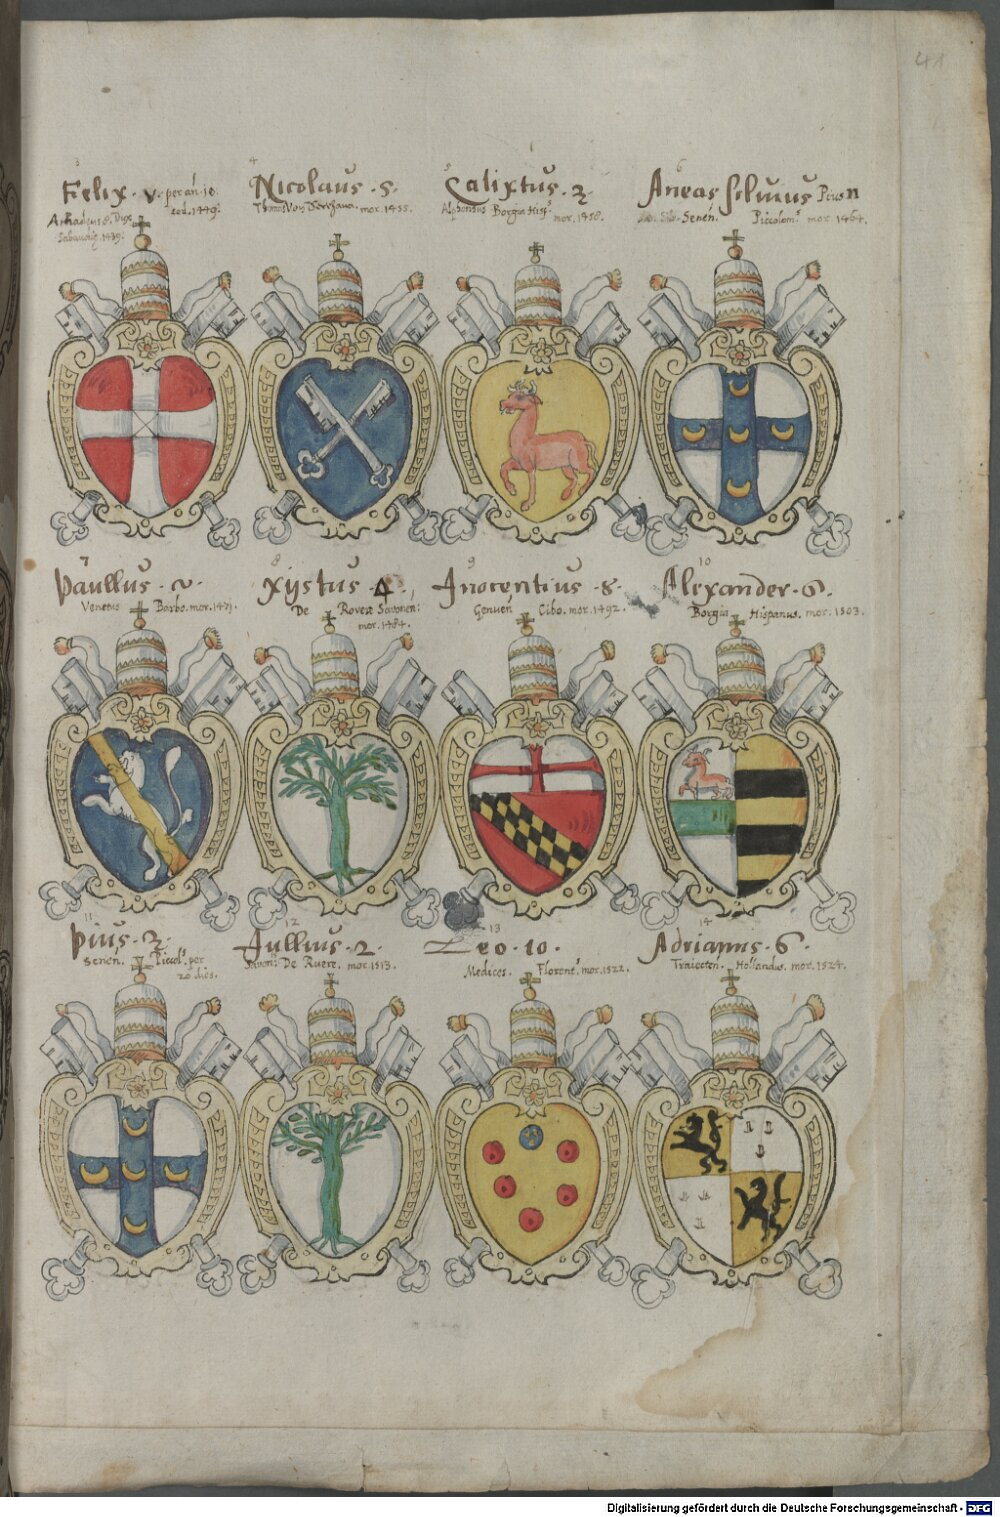 41
3
Felix . V . per an. 10.
ced. 1449.
Amadeus 8. Dux
Sabaudię 1439.
4
Nicolaus . 5.
Thomas Von Serezana. mor. 1455.
5
Calixtus . 3.
Alphonsus Borgia Hisp.
mor. 1458.
6
Aneas Silvius Pius II
Senen. Piccolom. mor. 1464.
7
Paullus . 2.
Venetus Barbo. mor. 1471.
8
Xystus 4.
De Rovere Saronen:
mor. 1484.
9
Inocentius . 8.
Genuen. Cibo. mor. 1492.
10
Alexander . 6.
Borgia Hispanus. mor. 1503.
11
Pius . 3.
Senen. Piccol. per
26 dies.
12
Jullius . 2.
Savon. De Ruere. mor. 1513.
13
Leo . 10.
Medices. Florent. mor. 1522.
14
Adrianus . 6.
Traiecten. Hollandus. mor. 1524.
Digitalisierung gefördert durch die Deutsche Forschungsgemeinschaft - DFG